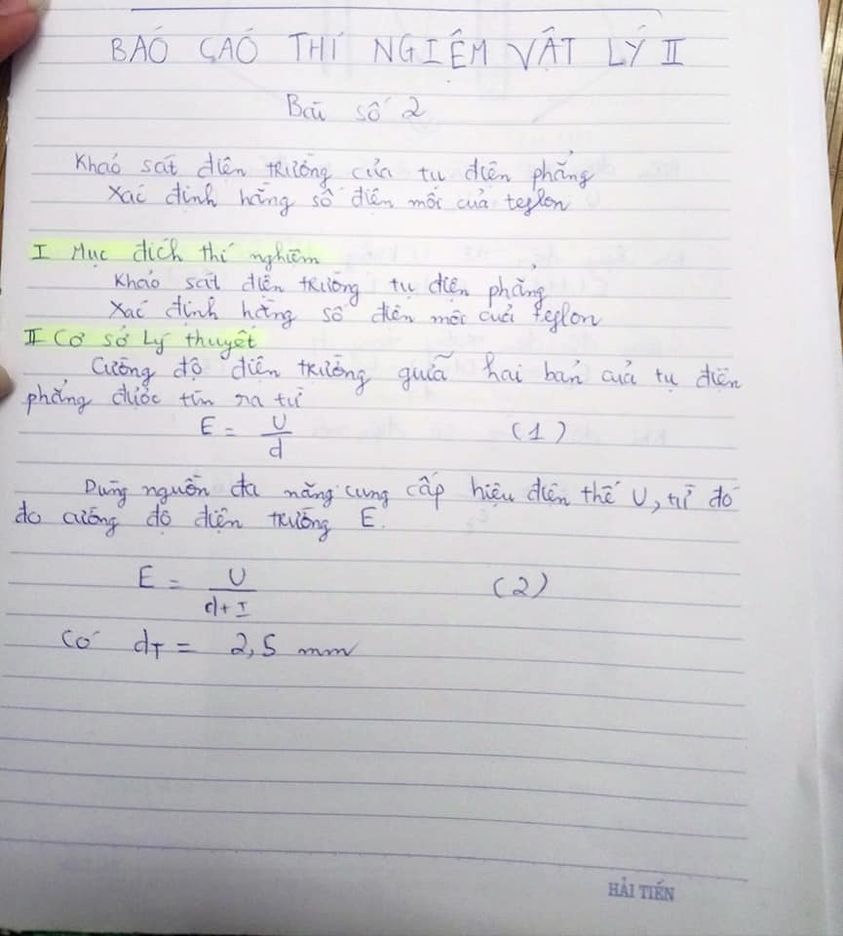 BÁO CÁO THÍ NGHIỆM VẬT LÝ II
Bài số 2
Khảo sát điện trường của tụ điện phẳng
Xác định hằng số điện môi của teflon
I Mục đích thí nghiệm
Khảo sát điện trường tụ điện phẳng
Xác định hằng số điện môi của teflon
II Cơ sở Lý thuyết
Cường độ điện trường giữa hai bản của tụ điện
phẳng được tìn ra từ
E = U/d (1)
Dùng nguồn đa năng cung cấp hiệu điện thế U, từ đó
đo cường độ điện trường E.
E = U/d+I (2)
Có d_T = 2,5 mm
HẢI TIẾN